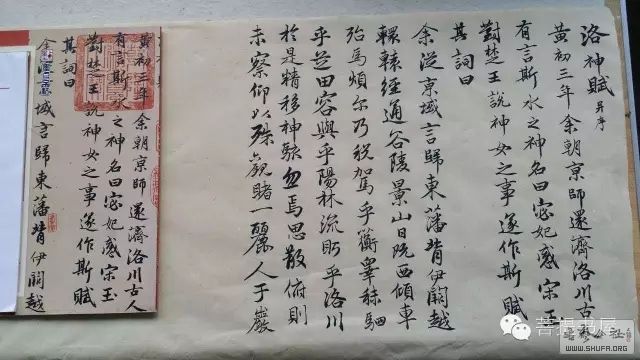 洛神賦 并序
黄初三年余朝京師還濟洛川古
有言斯水之神名曰宓妃感宋玉
對楚王說神女之事遂作斯賦
其詞曰
余從京域言歸東藩背伊闕越
轘轅經通谷陵景山日既西傾車
殆馬煩尔乃税駕乎蘅皋秣駟
乎芝田容與乎陽林流眄乎洛川
於是精移神駭忽焉思散俯則
未察仰以殊觀睹一麗人于巖
黄初三年余朝京師還濟洛川古人
有言斯水之神名曰宓妃感宋玉
對楚王說神女之事遂作斯賦
其詞曰
余域言歸東藩背伊闕越
菩提书屋
WWW.SHUFA.ORG